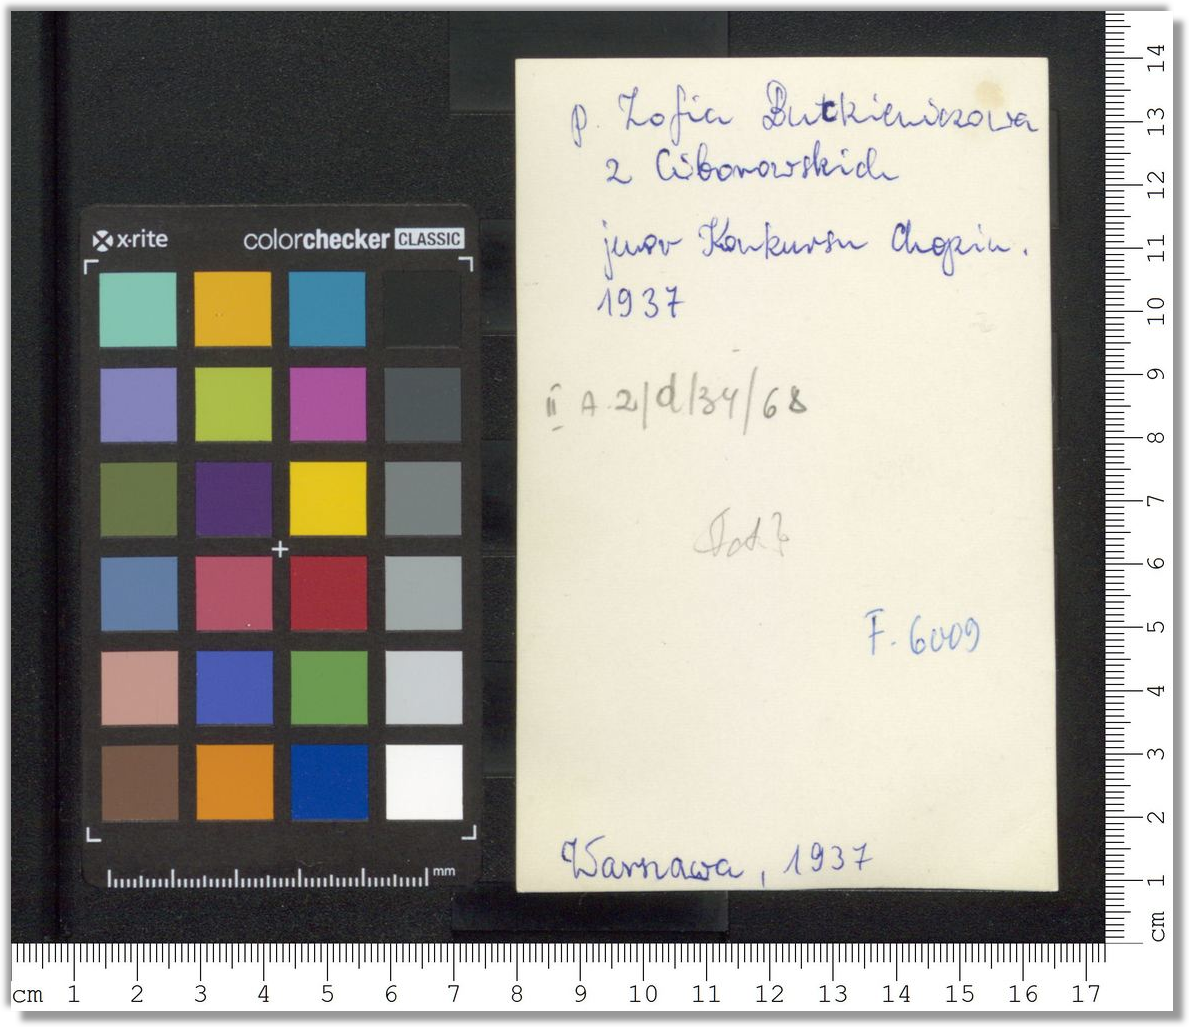 x·rite colorchecker CLASSIC
mm
p. Zofia Butkiewiczowa
z Ciborowskich
juror Konkursu Chopin.
1937
II A 2/d/34/68
Fot. ?
F. 6009
Warszawa, 1937
14
13
12
11
10
9
8
7
6
5
4
3
2
1
cm
cm 1 2 3 4 5 6 7 8 9 10 11 12 13 14 15 16 17